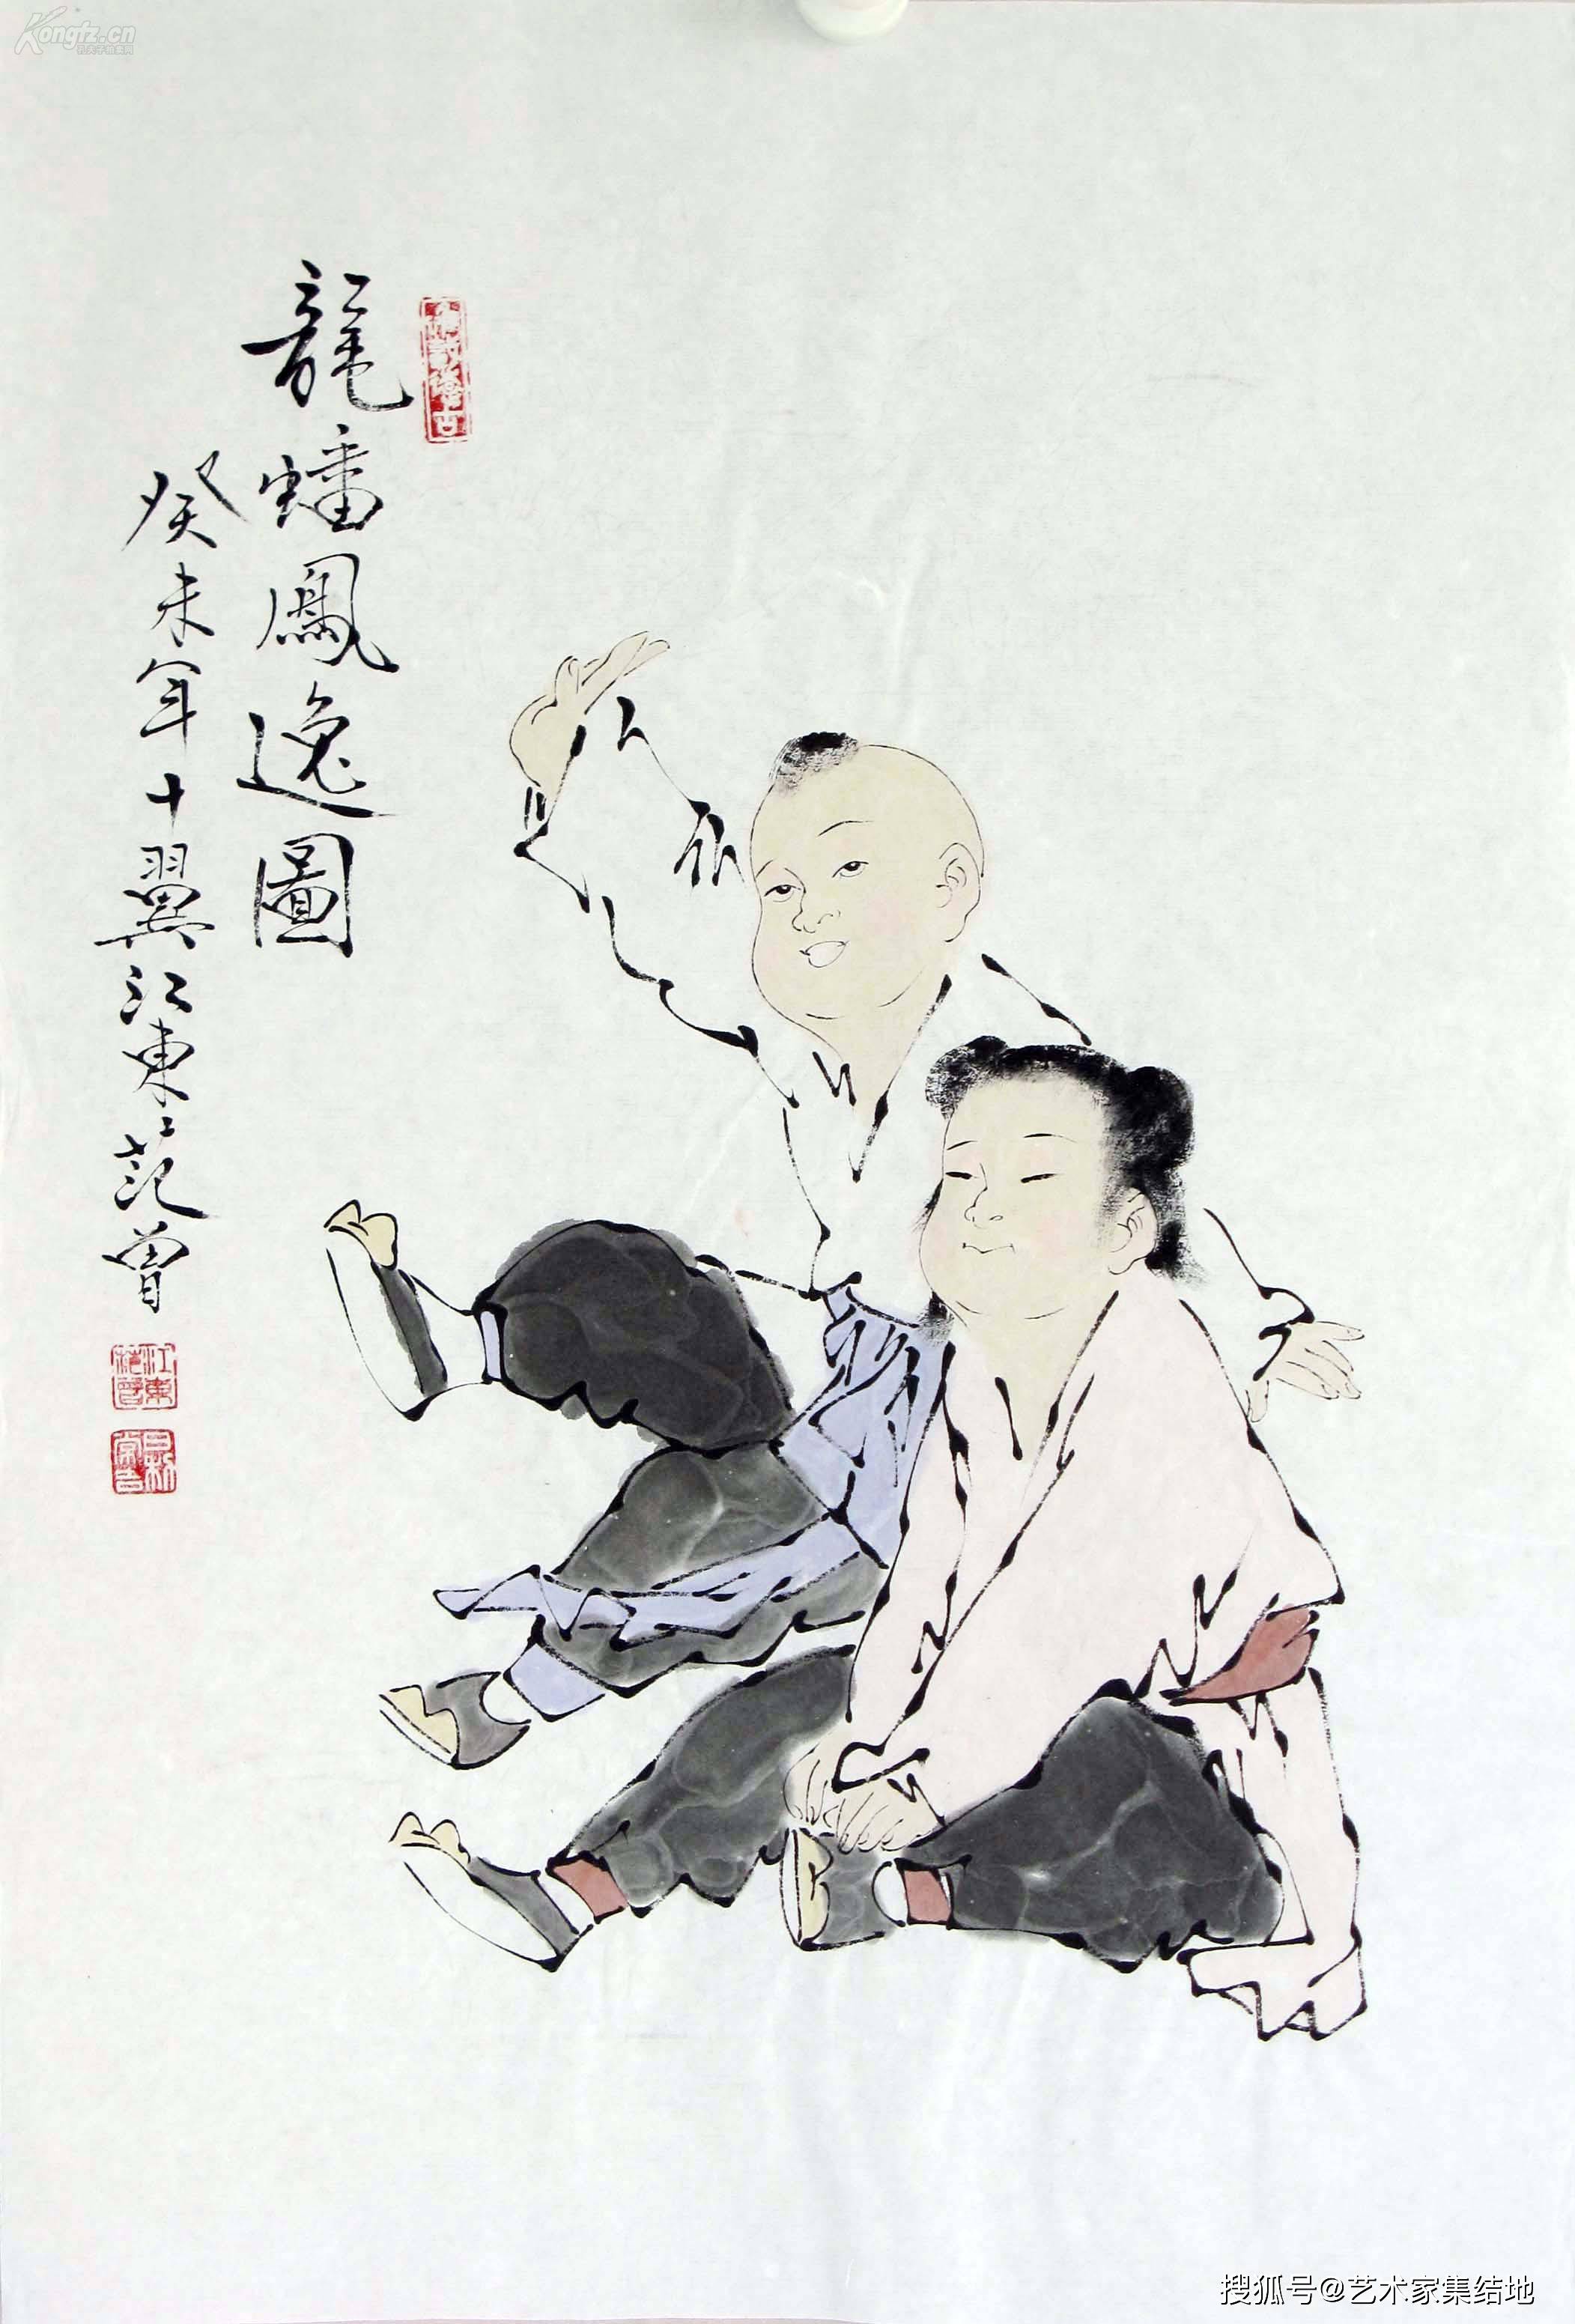 龍蟠鳳逸圖
癸未年十翼江東范曾
江東范曾
Kongfz.cn
搜狐号@艺术家集结地